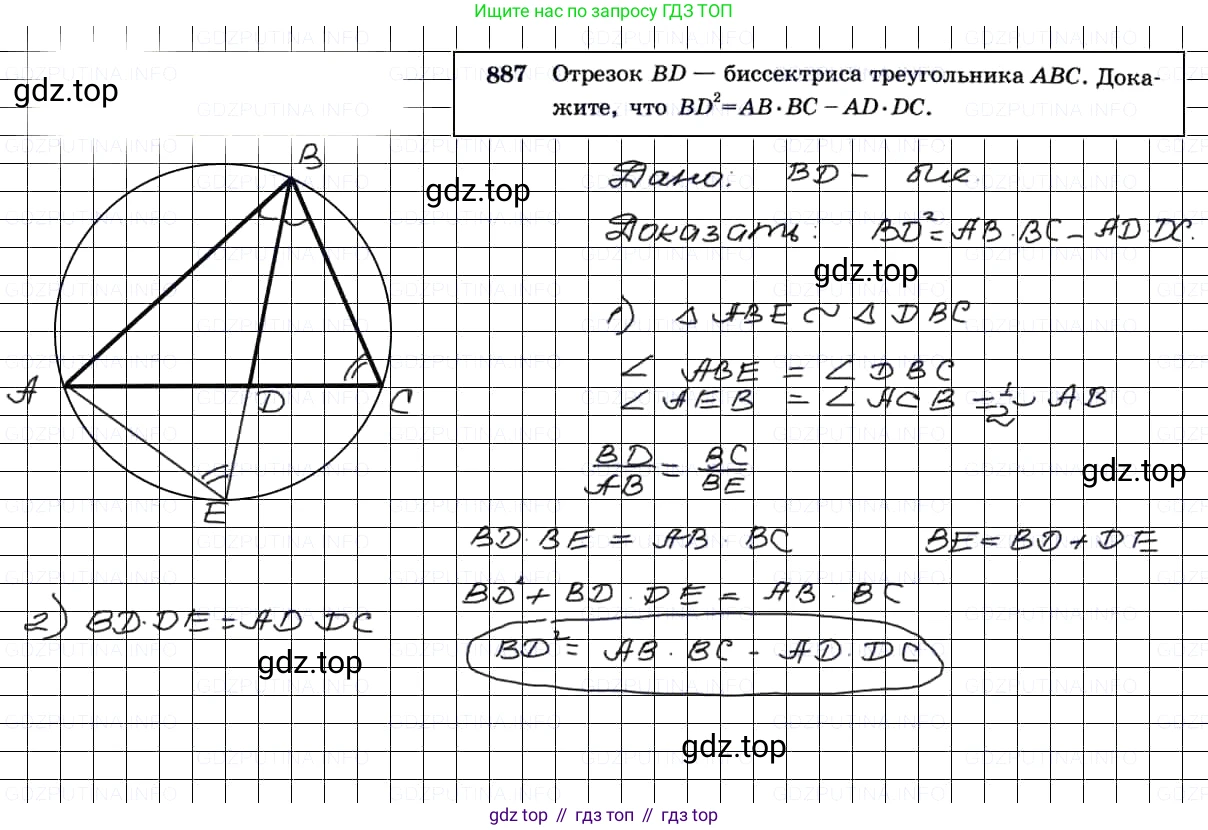 Ищите нас по запросу ГДЗ ТОП
887 Отрезок BD — биссектриса треугольника ABC. Дока-
жите, что BD²=AB·BC – AD·DC.
gdz.top
B
gdz.top
Дано: BD – бис.
Доказать: BD² = AB·BC – AD·DC.
gdz.top
1) Δ ABE ~ Δ DBC
∠ ABE = ∠ DBC
A
D
C
∠ AEB = ∠ ACB = 1/2 ◡ AB
BD/AB = BC/BE
gdz.top
E
BD·BE = AB·BC BE = BD + DE
BD² + BD·DE = AB·BC
2) BD·DE = AD·DC
BD² = AB·BC – AD·DC
gdz.top
gdz.top
gdz.top // гдз топ // gdz top
GDZPUTINA.INFO